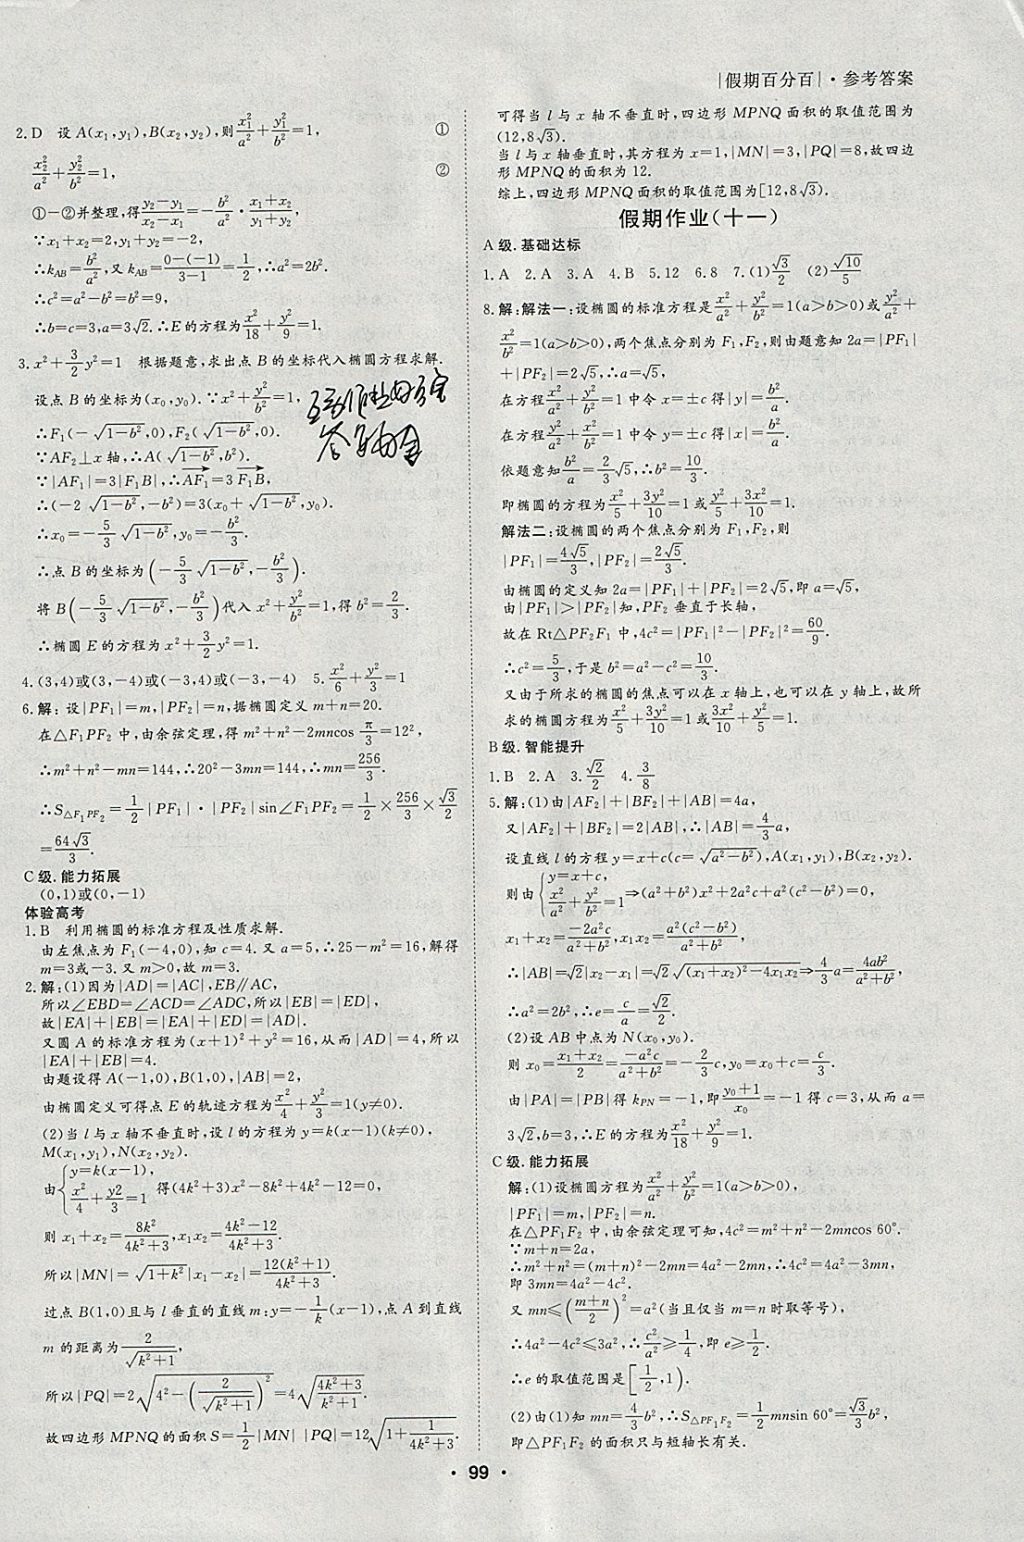 |假期百分百|·参考答案
2.D 设A(x₁,y₁),B(x₂,y₂),则x₁²/a²+y₁²/b²=1, ①
x₂²/a²+y₂²/b²=1, ②
①-②并整理,得(y₂-y₁)/(x₂-x₁)=-b²/a²·(x₁+x₂)/(y₁+y₂)
∵x₁+x₂=2,y₁+y₂=-2,
∴k_AB=b²/a²,又k_AB=(0-(-1))/(3-1)=1/2,∴a²=2b².
∴c²=a²-b²=b²=9,
∴b=c=3,a=3√2.∴E的方程为x²/18+y²/9=1.
3.x²+3/2y²=1 根据题意,求出点B的坐标代入椭圆方程求解.
设点B的坐标为(x₀,y₀).∵x²+y²/b²=1,
∴F₁(-√(1-b²),0),F₂(√(1-b²),0).
∵AF₂⊥x轴,∴A(√(1-b²),b²).
∵|AF₁|=3|F₁B|,∴AF₁=3F₁B,
∴(-2√(1-b²),-b²)=3(x₀+√(1-b²),y₀).
∴x₀=-5/3√(1-b²),y₀=-b²/3.
∴点B的坐标为(-5/3√(1-b²),-b²/3).
将B(-5/3√(1-b²),-b²/3)代入x²+y²/b²=1,得b²=2/3.
∴椭圆E的方程为x²+3/2y²=1.
4.(3,4)或(3,-4)或(-3,4)或(-3,-4) 5.x²/6+y²/3=1
6.解:设|PF₁|=m,|PF₂|=n,据椭圆定义m+n=20.
在△F₁PF₂中,由余弦定理,得m²+n²-2mncos π/3=12²,
∴m²+n²-mn=144,∴20²-3mn=144,∴mn=256/3.
∴S△F₁PF₂=1/2|PF₁|·|PF₂|sin∠F₁PF₂=1/2×256/3×√3/2
=64√3/3.
C级.能力拓展
(0,1)或(0,-1)
体验高考
1.B 利用椭圆的标准方程及性质求解.
由左焦点为F₁(-4,0),知c=4.又a=5,∴25-m²=16,解得
m=3或-3.又m>0,故m=3.
2.解:(1)因为|AD|=|AC|,EB∥AC,
所以∠EBD=∠ACD=∠ADC,所以|EB|=|ED|,
故|EA|+|EB|=|EA|+|ED|=|AD|.
又圆A的标准方程为(x+1)²+y²=16,从而|AD|=4,所以
|EA|+|EB|=4.
由题设得A(-1,0),B(1,0),|AB|=2,
由椭圆定义可得点E的轨迹方程为x²/4+y²/3=1(y≠0).
(2)当l与x轴不垂直时,设l的方程为y=k(x-1)(k≠0),
M(x₁,y₁),N(x₂,y₂).
由{y=k(x-1), x²/4+y2/3=1 得(4k²+3)x²-8k²+4k²-12=0,
则x₁+x₂=8k²/(4k²+3),x₁x₂=(4k²-12)/(4k²+3).
所以|MN|=√(1+k²)|x₁-x₂|=12(k²+1)/(4k²+3).
过点B(1,0)且与l垂直的直线m:y=-1/k(x-1),点A到直线
m的距离为2/√(k²+1),
所以|PQ|=2√(4²-(2/√(k²+1))²)=4√((4k²+3)/(k²+1)).
故四边形MPNQ的面积S=1/2|MN||PQ|=12√(1+1/(4k²+3)).
可得当l与x轴不垂直时,四边形MPNQ面积的取值范围为
(12,8√3).
当l与x轴垂直时,其方程为x=1,|MN|=3,|PQ|=8,故四边
形MPNQ的面积为12.
综上,四边形MPNQ面积的取值范围为[12,8√3).
假期作业(十一)
A级.基础达标
1.A 2.A 3.A 4.B 5.12 6.8 7.(1)√3/2 (2)√10/5
8.解:解法一:设椭圆的标准方程是x²/a²+y²/b²=1(a>b>0)或y²/a²+
x²/b²=1(a>b>0),两个焦点分别为F₁,F₂,则由题意知2a=|PF₁|
+|PF₂|=2√5,∴a=√5,
在方程x²/a²+y²/b²=1中令x=±c得|y|=b²/a,
在方程y²/a²+x²/b²=1中令y=±c得|x|=b²/a.
依题意知b²/a=2/3√5,∴b²=10/3.
即椭圆的方程为x²/5+3y²/10=1或y²/5+3x²/10=1.
解法二:设椭圆的两个焦点分别为F₁,F₂,则
|PF₁|=4√5/3,|PF₂|=2√5/3.
由椭圆的定义知2a=|PF₁|+|PF₂|=2√5,即a=√5.
由|PF₁|>|PF₂|知,PF₂垂直于长轴,
故在Rt△PF₂F₁中,4c²=|PF₁|²-|PF₂|²=60/9.
∴c²=5/3,于是b²=a²-c²=10/3.
又由于所求的椭圆的焦点可以在x轴上,也可以在y轴上,故所
求的椭圆方程为x²/5+3y²/10=1或3x²/10+y²/5=1.
B级.智能提升
1.B 2.A 3.√2/2 4.3/8
5.解:(1)由|AF₂|+|BF₂|+|AB|=4a,
又|AF₂|+|BF₂|=2|AB|,∴|AB|=4/3a,
设直线l的方程y=x+c(c=√(a²-b²)),A(x₁,y₁),B(x₂,y₂).
则由{y=x+c, x²/a²+y²/b²=1⇒(a²+b²)x²+2a²c+a²(c²-b²)=0.
x₁+x₂=-2a²c/(a²+b²),x₁x₂=a²(c²-b²)/(a²+b²).
∴|AB|=√2|x₂-x₁|=√2√((x₁+x₂)²-4x₁x₂)⇒4/3a=4ab²/(a²+b²).
∴a²=2b²,∴e=c/a=√2/2.
(2)设AB中点为N(x₀,y₀).
则x₀=(x₁+x₂)/2=-a²c/(a²+b²)=-2/3c,y₀=x₀+c=c/3.
由|PA|=|PB|得k_PN=-1,即(y₀+1)/x₀=-1得c=3,从而a=
3√2,b=3,∴E的方程为x²/18+y²/9=1.
C级.能力拓展
解:(1)设椭圆方程为x²/a²+y²/b²=1(a>b>0),
|PF₁|=m,|PF₂|=n.
在△PF₁F₂中,由余弦定理可知,4c²=m²+n²-2mncos 60°.
∵m+n=2a,
∴m²+n²=(m+n)²-2mn=4a²-2mn,∴4c²=4a²-3mn,
即3mn=4a²-4c².
又mn≤((m+n)/2)²=a²(当且仅当m=n时取等号),
∴4a²-4c²≤3a²,∴c²/a²≥1/4,即e≥1/2.
∴e的取值范围是[1/2,1).
(2)由(1)知mn=4/3b²,∴S△PF₁F₂=1/2mnsin 60°=√3/3b²,
即△PF₁F₂的面积只与短轴长有关.
·99·